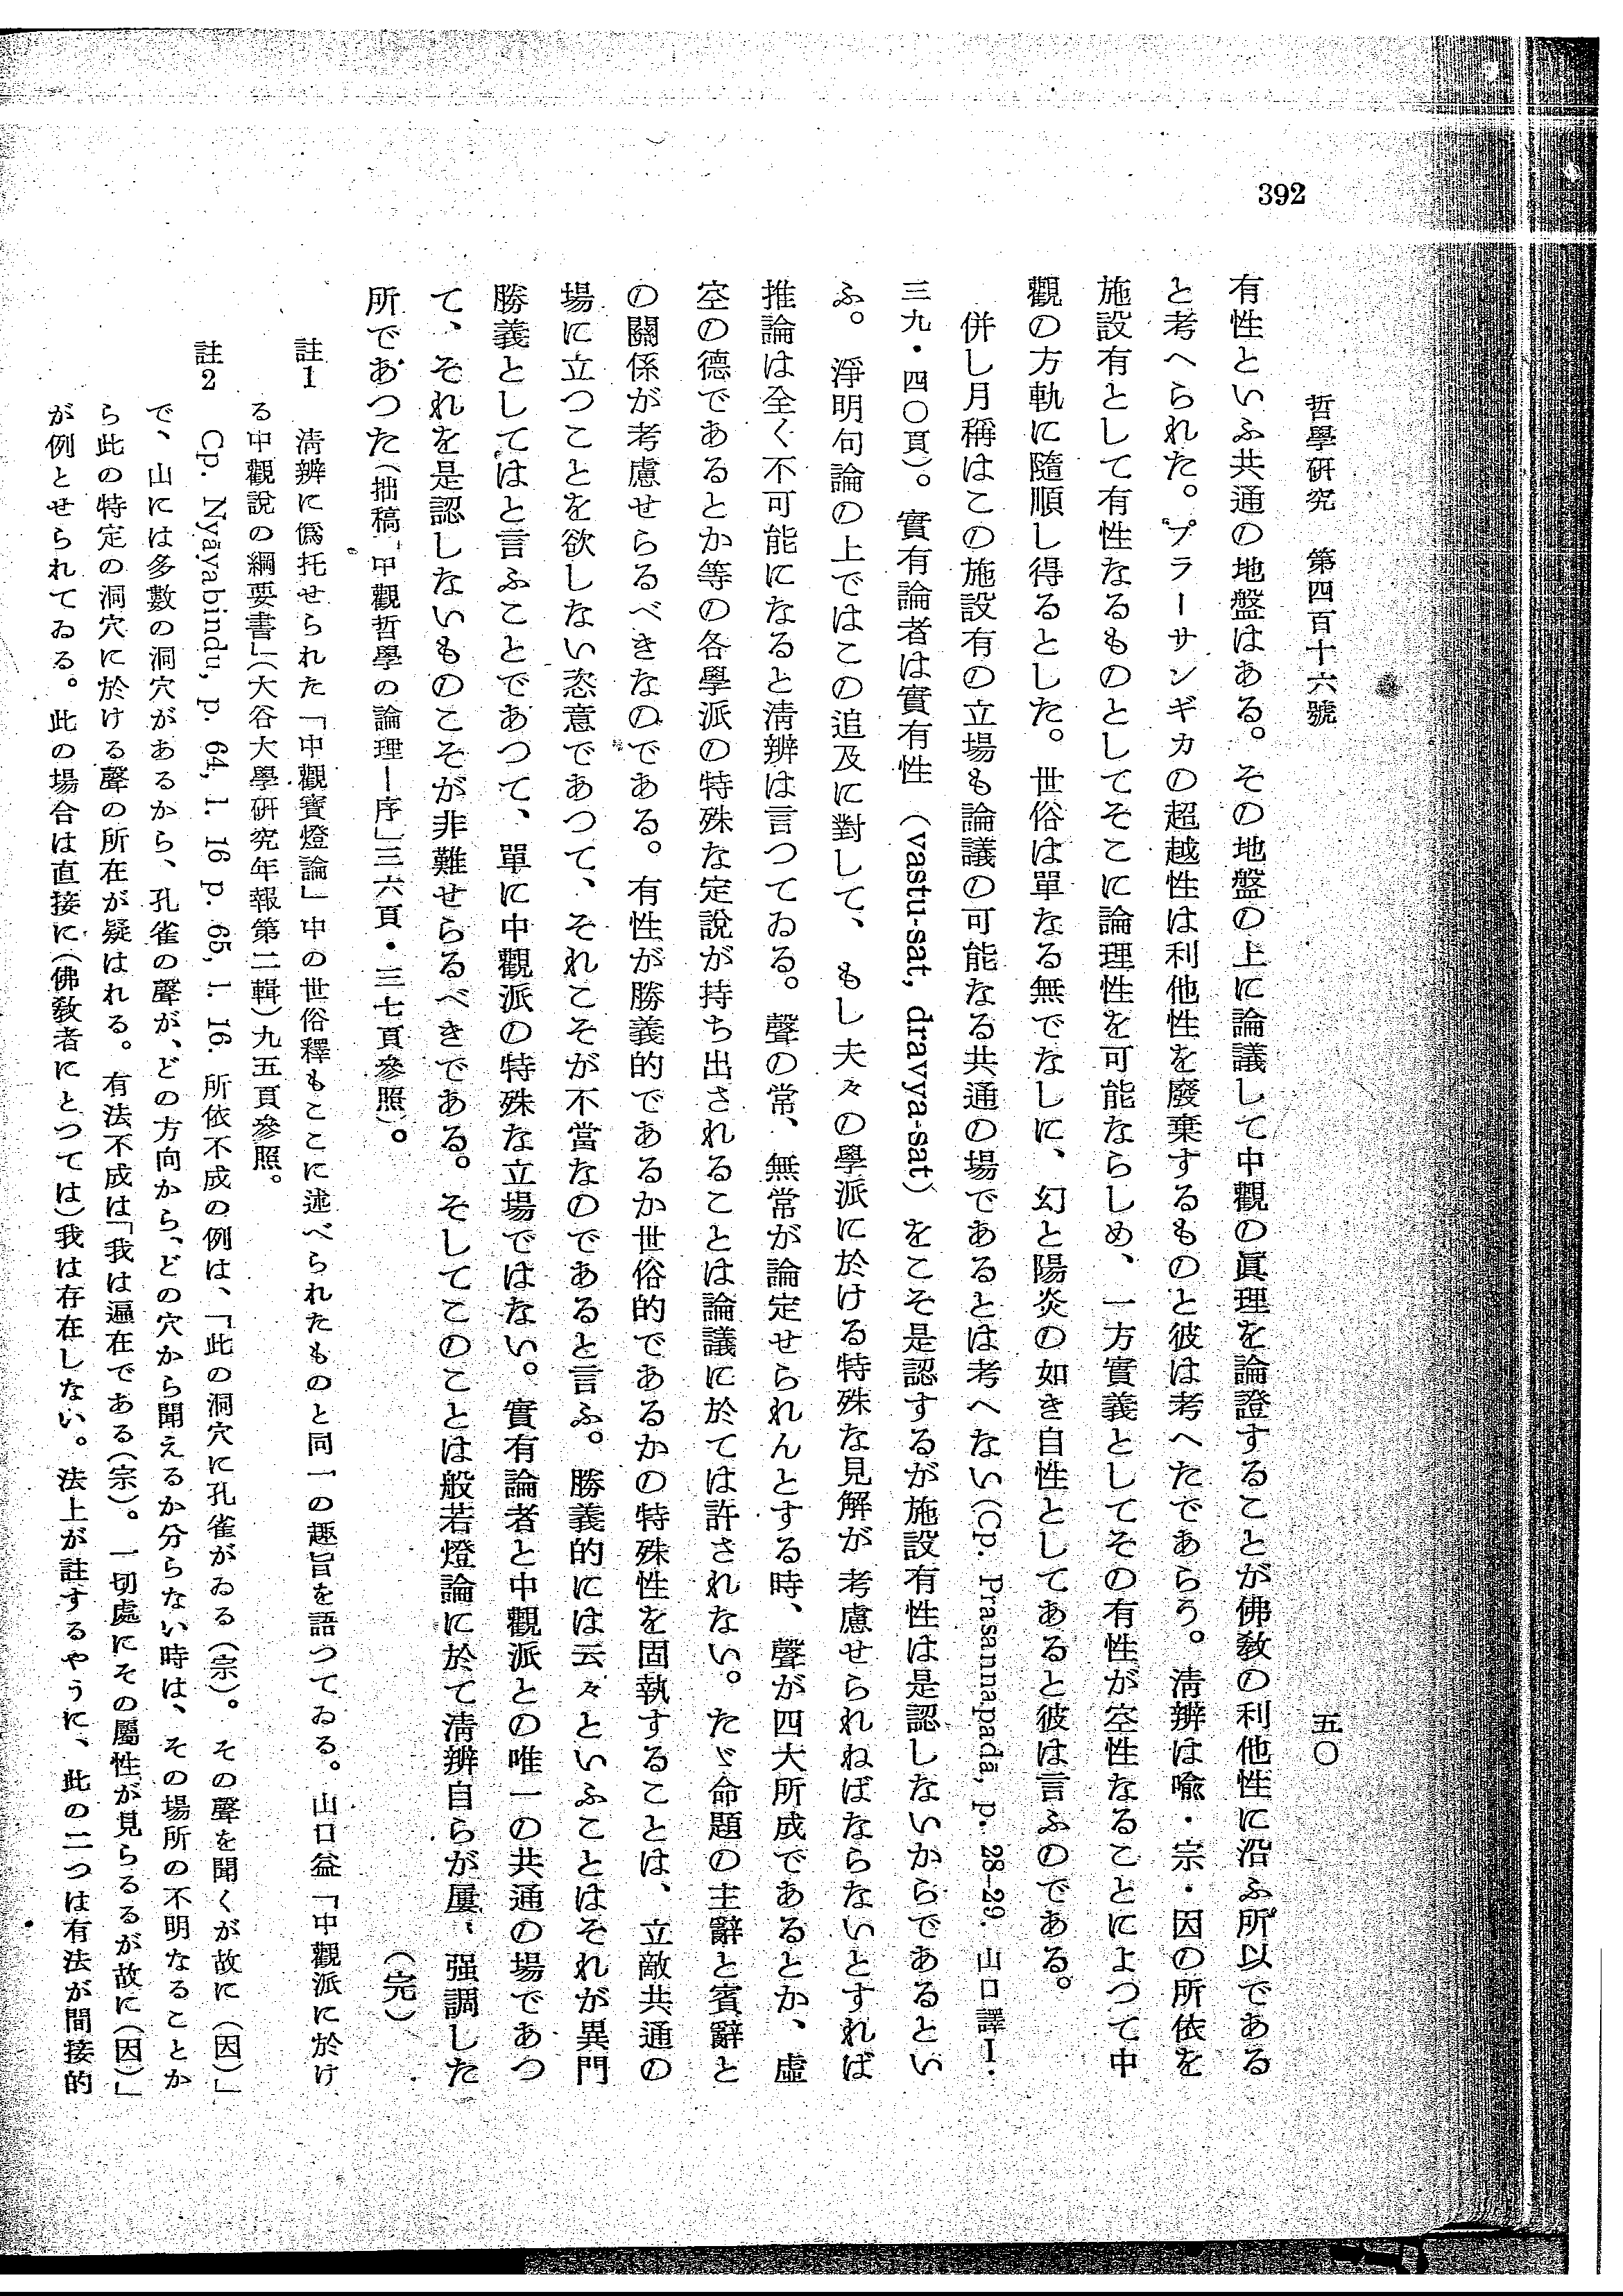 392
哲學硏究　第四百十六號　五〇
有性といふ共通の地盤はある。その地盤の上に論議して中觀の眞理を論證することが佛敎の利他性に沿ふ所以である
と考へられた。プラーサンギカの超越性は利他性を廢棄するものと彼は考へたであらう。淸辨は喩・宗・因の所依を
施設有として有性なるものとしてそこに論理性を可能ならしめ、一方實義としてその有性が空性なることによつて中
觀の方軌に隨順し得るとした。世俗は單なる無でなしに、幻と陽炎の如き自性としてあると彼は言ふのである。
併し月稱はこの施設有の立場も論議の可能なる共通の場であるとは考へない（Cp. Prasannapadā, p. 28-29. 山口譯Ⅰ・
三九・四〇頁）。實有論者は實有性（vastu-sat, dravya-sat）をこそ是認するが施設有性は是認しないからであるとい
ふ。淨明句論の上ではこの追及に對して、もし夫々の學派に於ける特殊な見解が考慮せられねばならないとすれば
推論は全く不可能になると淸辨は言つてゐる。聲の常、無常が論定せられんとする時、聲が四大所成であるとか、虛
空の德であるとか等の各學派の特殊な定說が持ち出されることは論議に於ては許されない。たゞ命題の主辭と賓辭と
の關係が考慮せらるべきなのである。有性が勝義的であるか世俗的であるかの特殊性を固執することは、立敵共通の
場に立つことを欲しない恣意であつて、それこそが不當なのであると言ふ。勝義的には云々といふことはそれが異門
勝義としてはと言ふことであつて、單に中觀派の特殊な立場ではない。實有論者と中觀派との唯一の共通の場であつ
て、それを是認しないものこそが非難せらるべきである。そしてこのことは般若燈論に於て淸辨自らが屢〻强調した
所であつた（拙稿「中觀哲學の論理ー序」三六頁・三七頁參照）。　（完）
註1　淸辨に僞托せられた「中觀寶燈論」中の世俗釋もここに述べられたものと同一の趣旨を語つてゐる。山口益「中觀派に於け
る中觀說の綱要書」（大谷大學硏究年報第二輯）九五頁參照。
註2　Cp. Nyāyabindu, p. 64, l. 16 p. 65, l. 16. 所依不成の例は、「此の洞穴に孔雀がゐる（宗）。その聲を聞くが故に（因）」
で、山には多數の洞穴があるから、孔雀の聲が、どの方向から、どの穴から聞えるか分らない時は、その場所の不明なることか
ら此の特定の洞穴に於ける聲の所在が疑はれる。有法不成は「我は遍在である（宗）。一切處にその屬性が見らるるが故に（因）」
が例とせられてゐる。此の場合は直接に（佛敎者にとつては）我は存在しない。法上が註するやうに、此の二つは有法が間接的